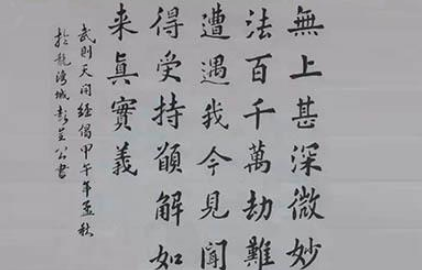 無上甚深微妙
法百千萬劫難
遭遇我今見聞
得受持願解如
来真實義
武則天開經偈甲午年孟秋
於龍海城彭芝公書